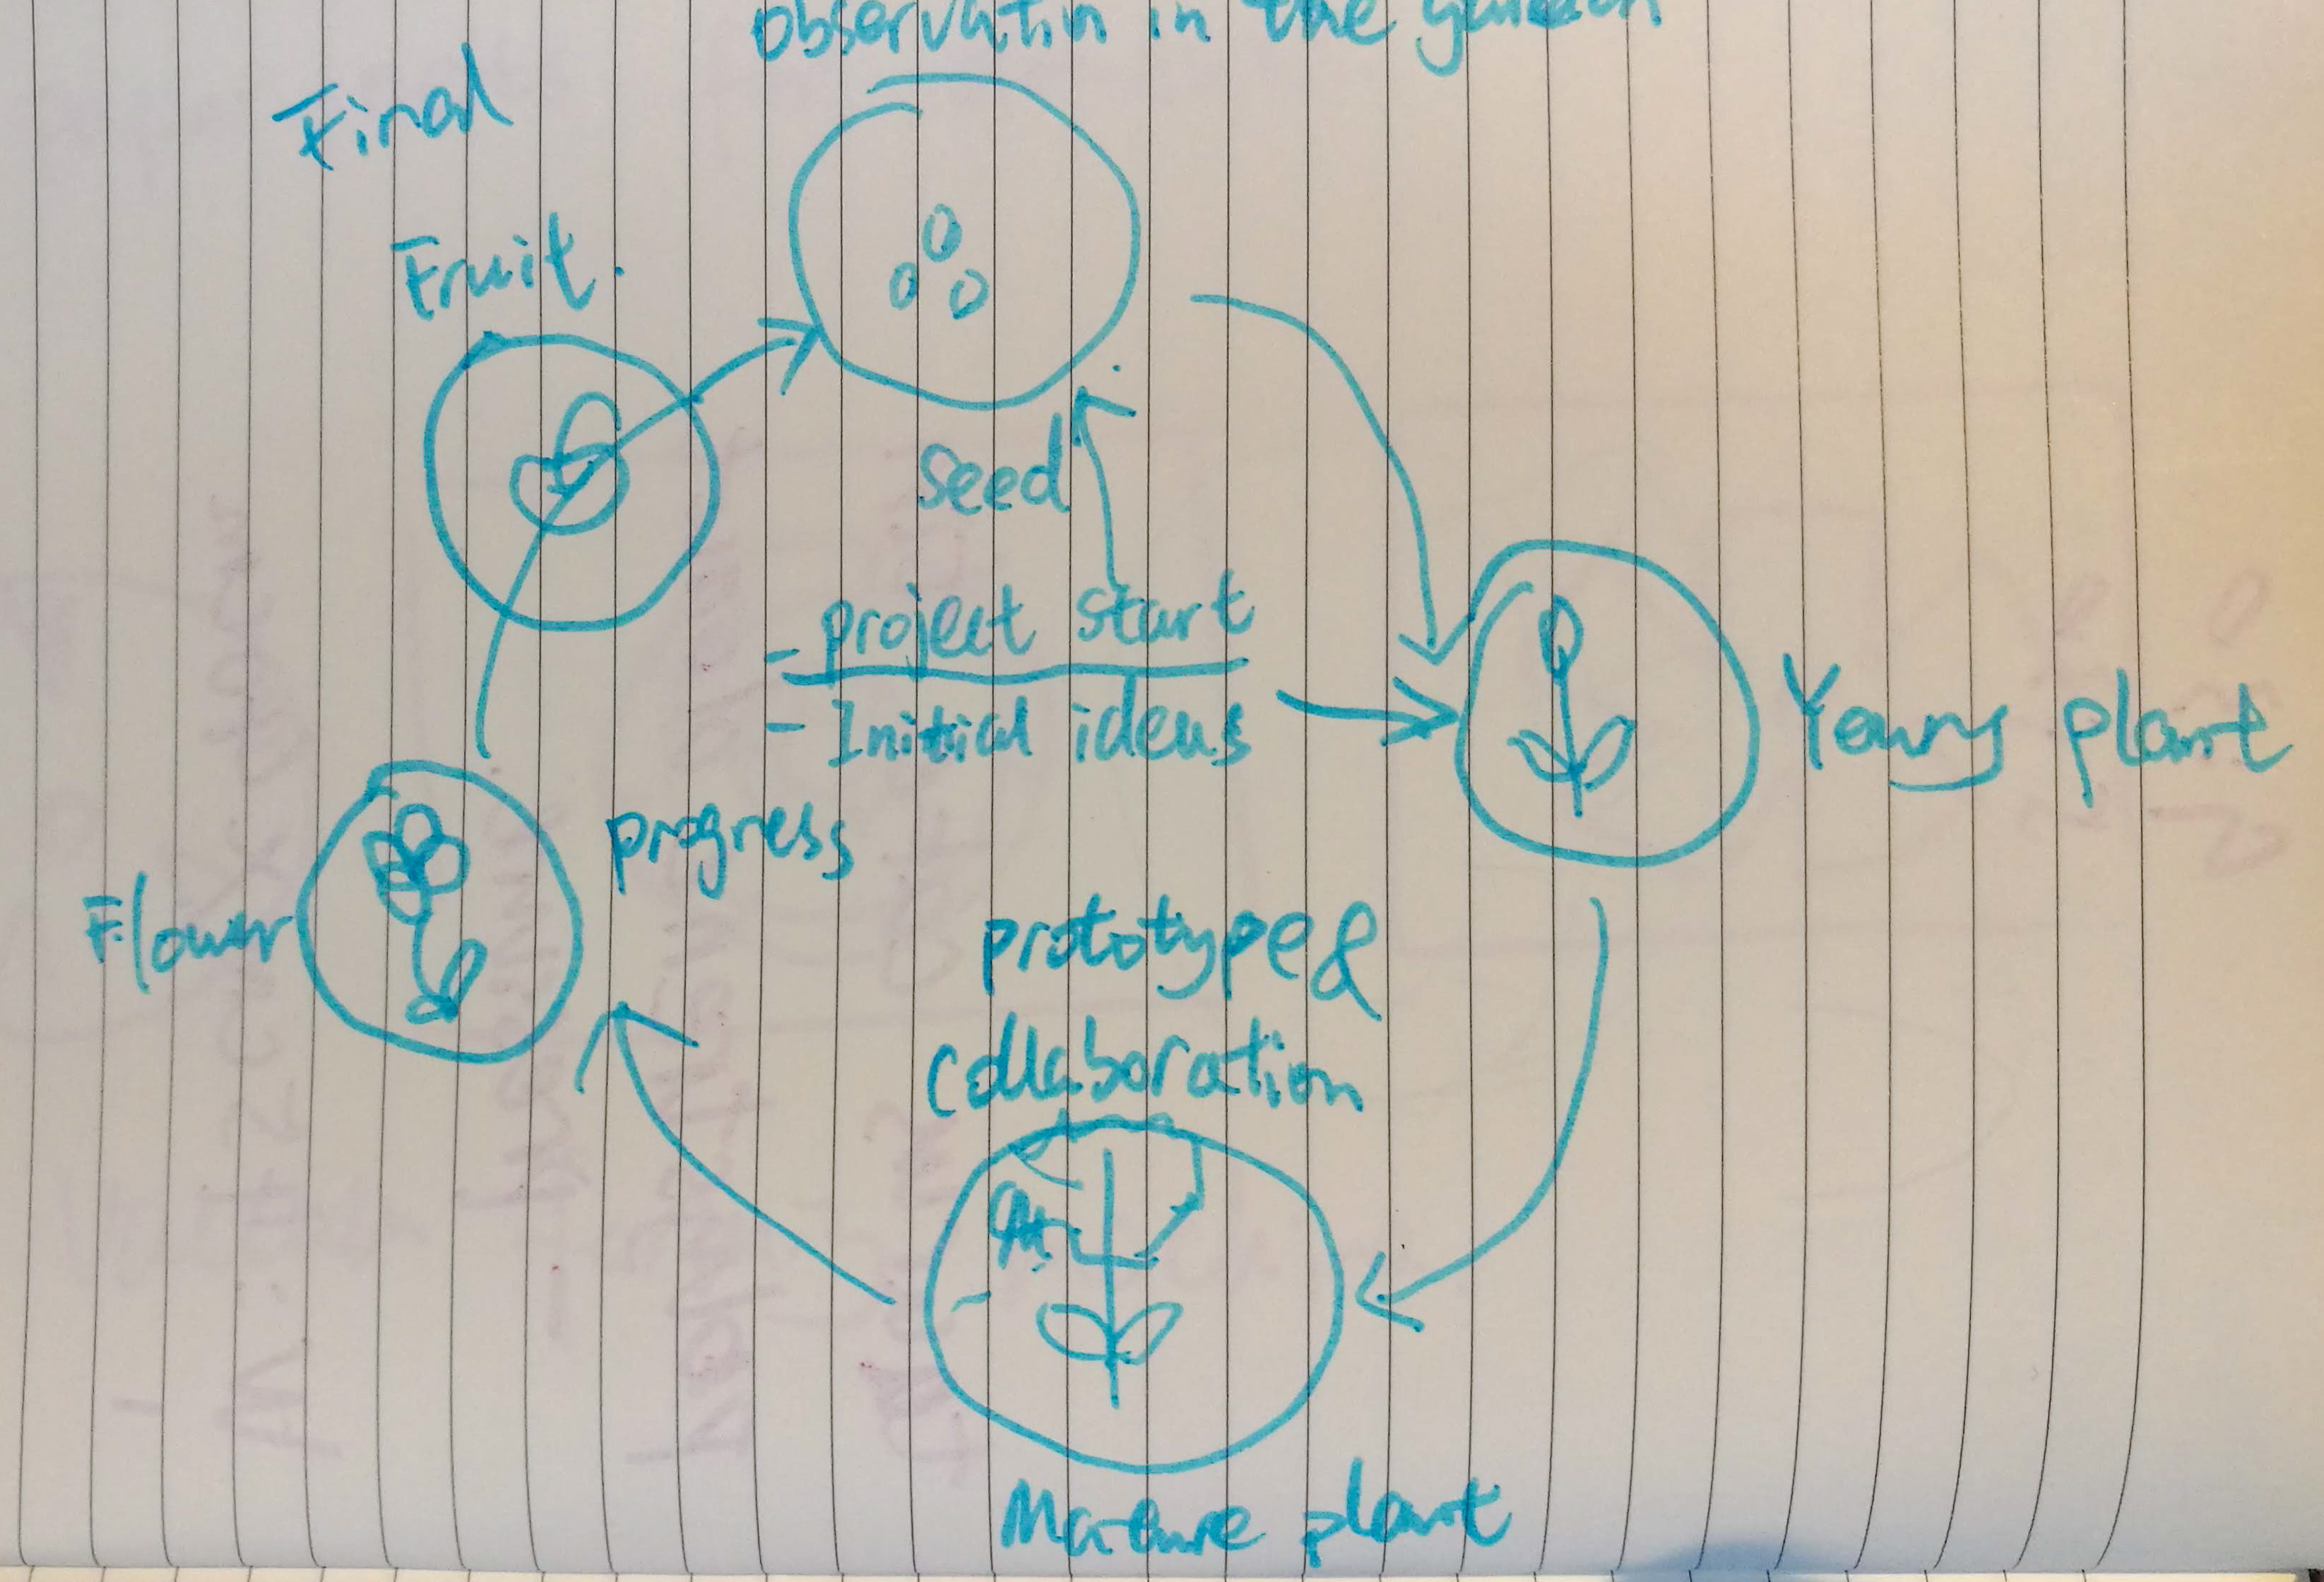 Observatin in the garden
Final
Fruit.
seed
- project start
- Initial ideas
Young plant
progress
Flower
prototype &
collaboration
Mature plant